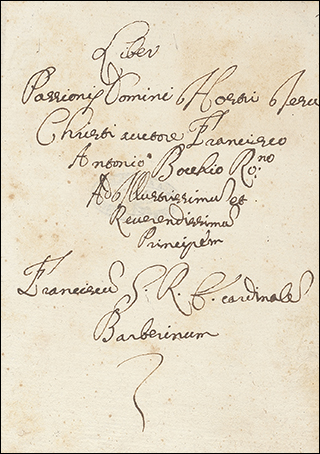 Liber
Passionis Domini Nostri Jesu
Christi auctore Francisco
Antonio Bocchio Ro:no
Ad Illustrissimum et
Reverendissimum
Principem
Franciscum S. R. E. Cardinalem
Barberinum